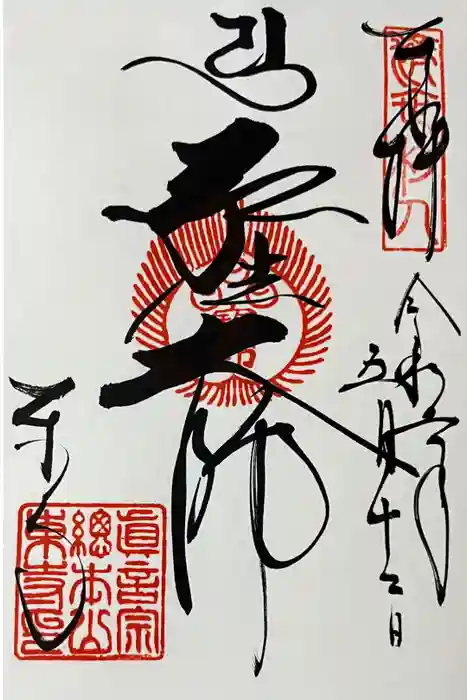 奉拝
令和六年
五月十二日
弘法大師
東寺
眞言宗
總本山
東寺印